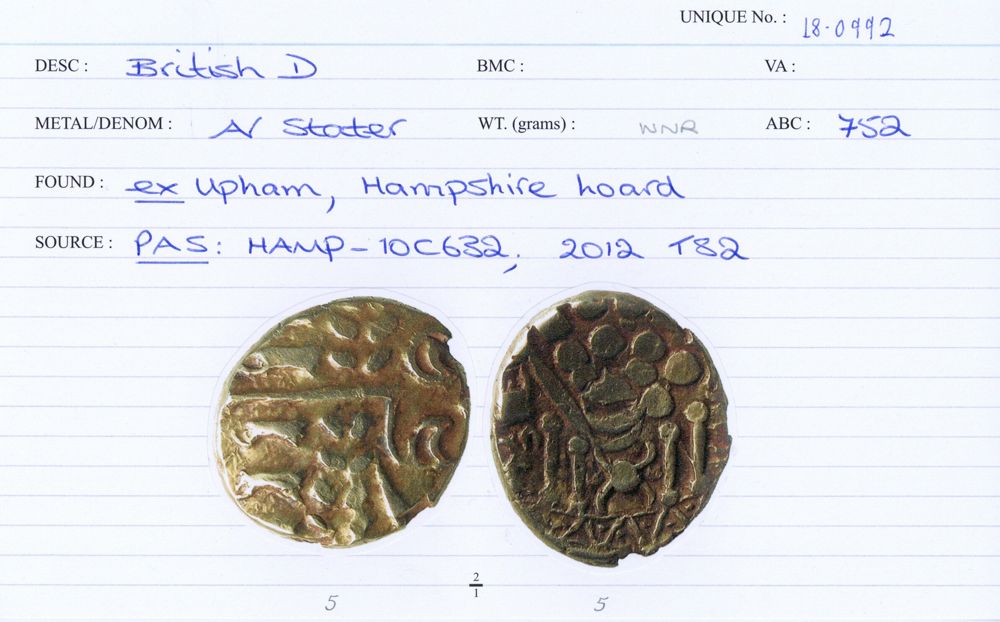 UNIQUE No. : 18-0992
DESC : British D BMC : VA :
METAL/DENOM : A/ Stater WT. (grams) : WNR ABC : 752
FOUND : ex Upham, Hampshire hoard
SOURCE : PAS: HAMP-10C632, 2012 T82
2
1
5 5